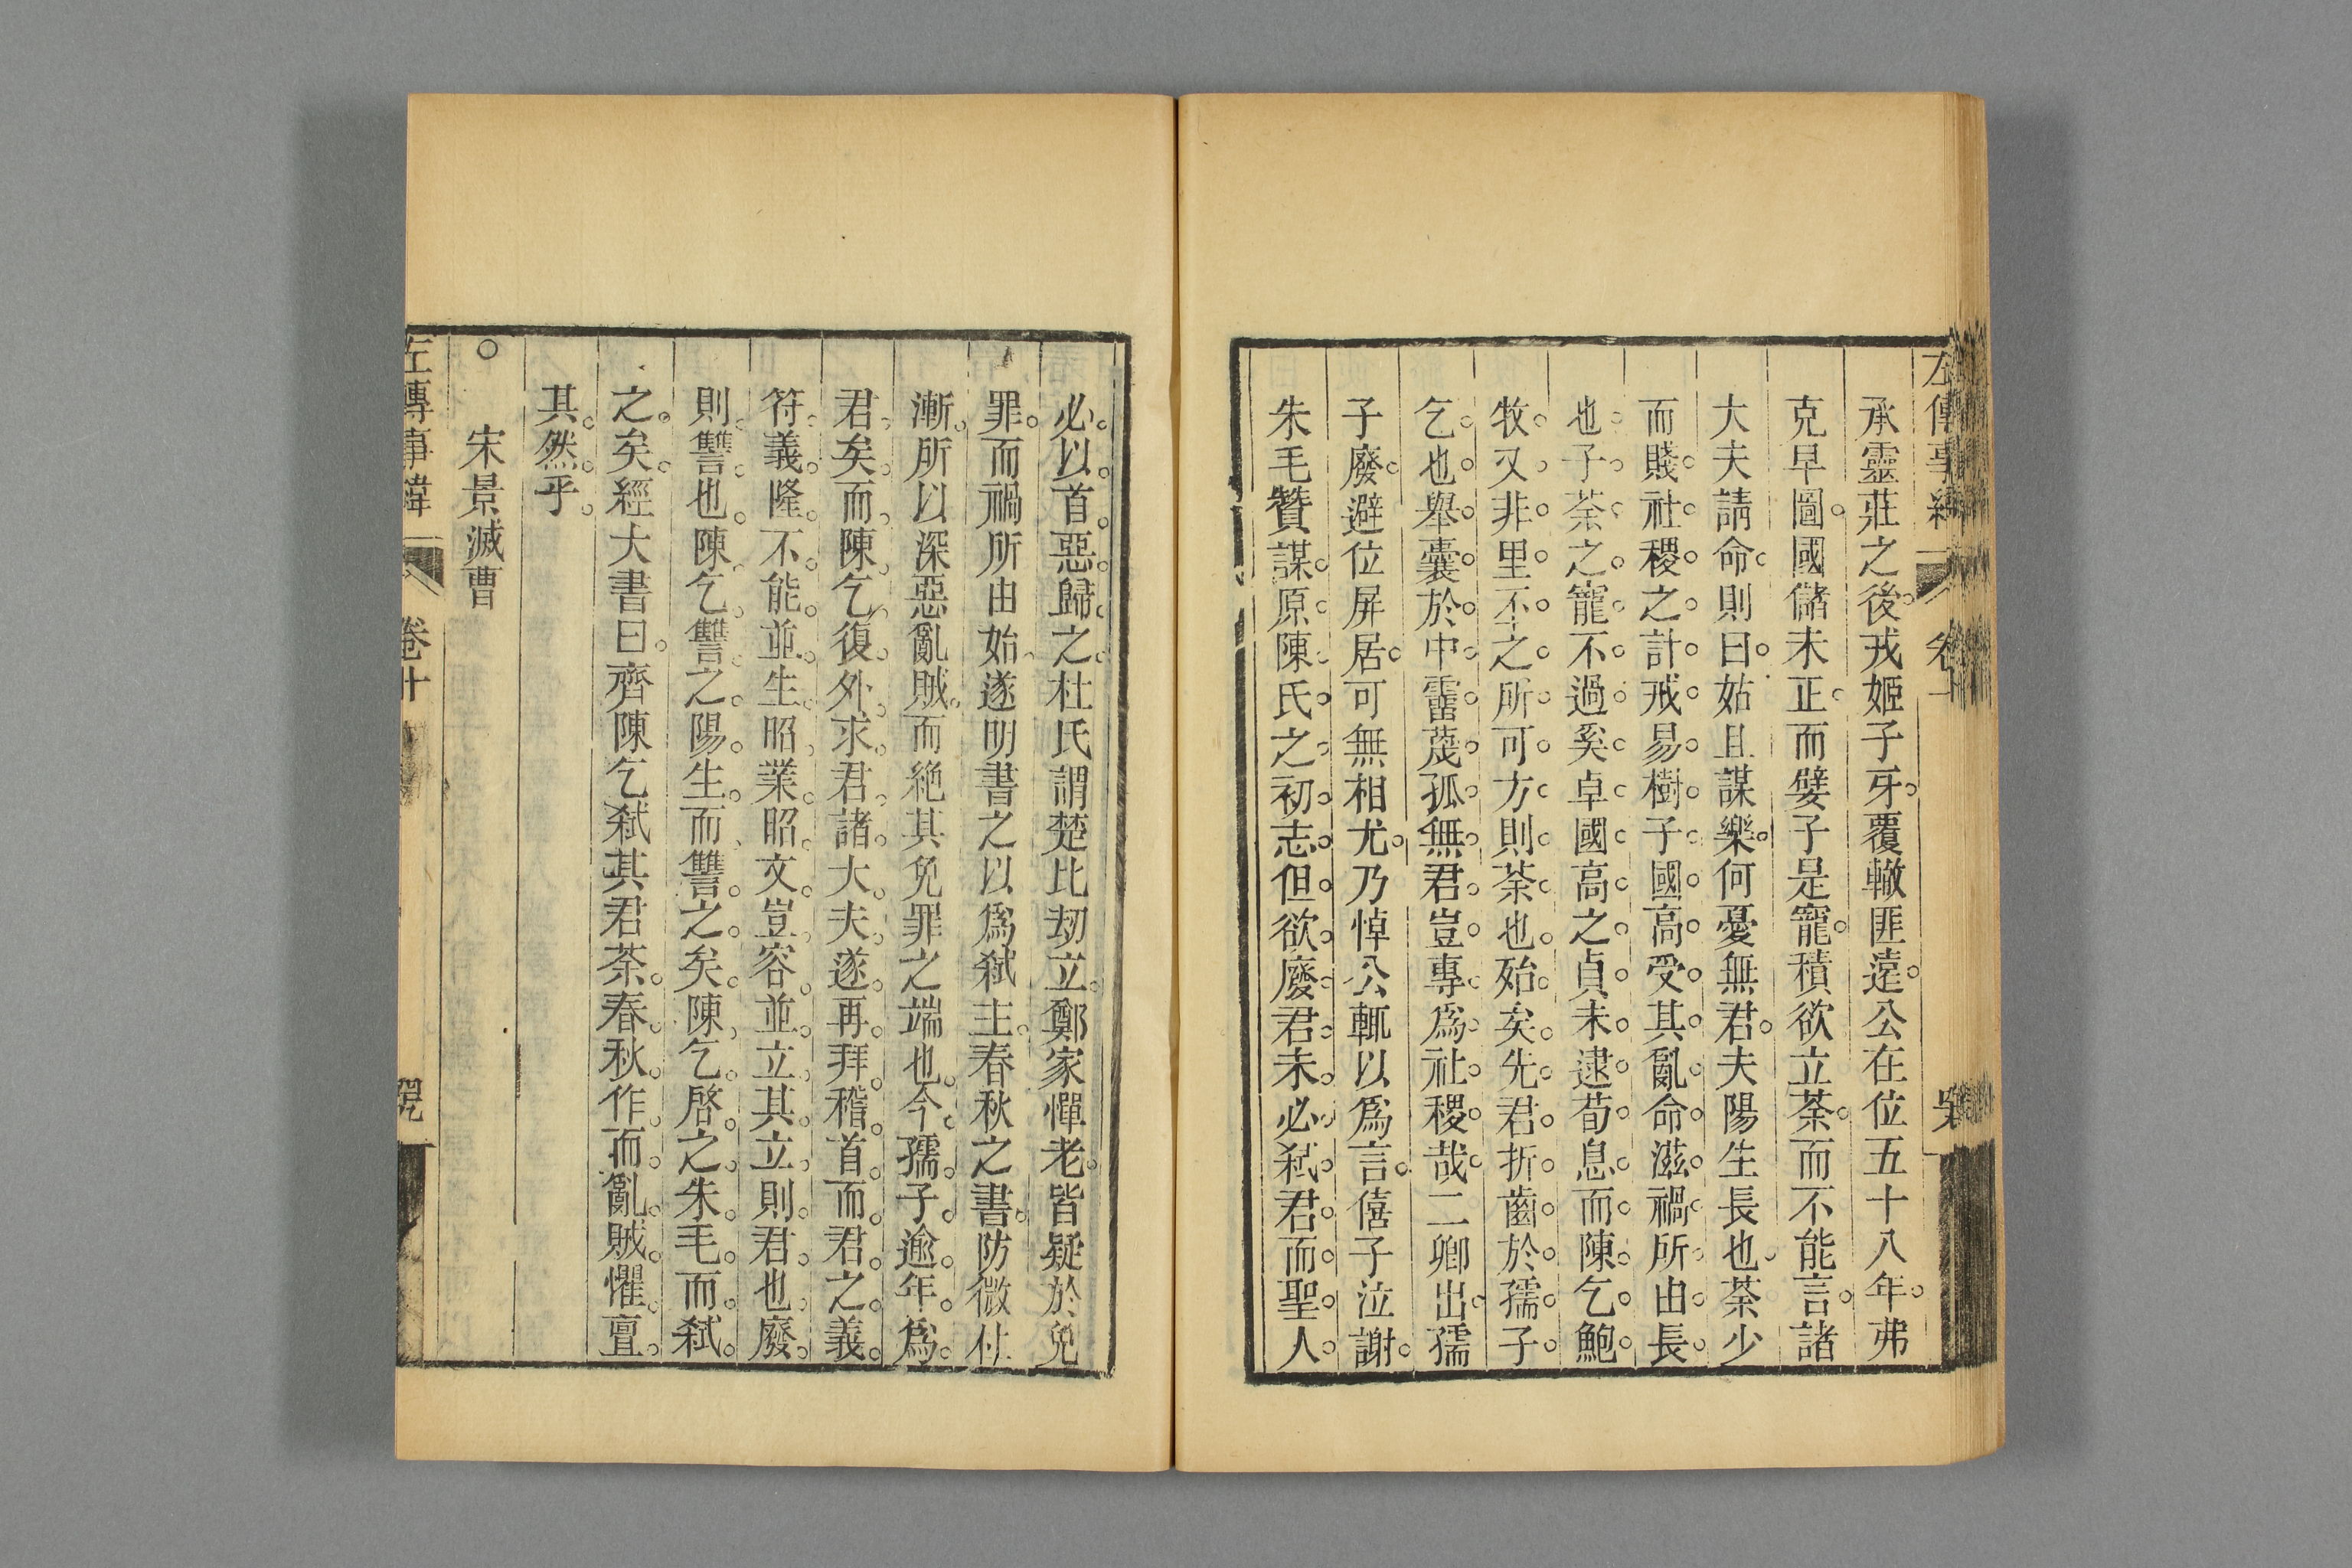 左傳事緯
卷十
承靈莊之後戎姬子牙覆轍匪遠公在位五十八年弗
克早圖國儲未正而嬖子是寵積欲立荼而不能言諸
大夫請命則曰姑且謀樂何憂無君夫陽生長也荼少
而賤社稷之計戒易樹子國高受其亂命滋禍所由長
也子荼之寵不過奚卓國高之貞未逮荀息而陳乞鮑
牧又非里丕之所可方則荼也殆矣先君折齒於孺子
乞也舉囊於中霤蔑孤無君豈專爲社稷哉二卿出孺
子廢避位屏居可無相尤乃悼公輒以爲言僖子泣謝
朱毛贊謀原陳氏之初志但欲廢君未必弑君而聖人
必以首惡歸之杜氏謂楚比刼立鄭家憚老皆疑於免
罪而禍所由始遂明書之以爲弑主春秋之書防微杜
漸所以深惡亂賊而絶其免罪之端也今孺子逾年爲
君矣而陳乞復外求君諸大夫遂再拜稽首而君之義
符義隆不能並生昭業昭文豈容並立其立則君也廢
則讐也陳乞讐之陽生而讐之矣陳乞啓之朱毛而弑
之矣經大書曰齊陳乞弑其君荼春秋作而亂賊懼亶
其然乎
○宋景滅曹
左傳事緯
卷十